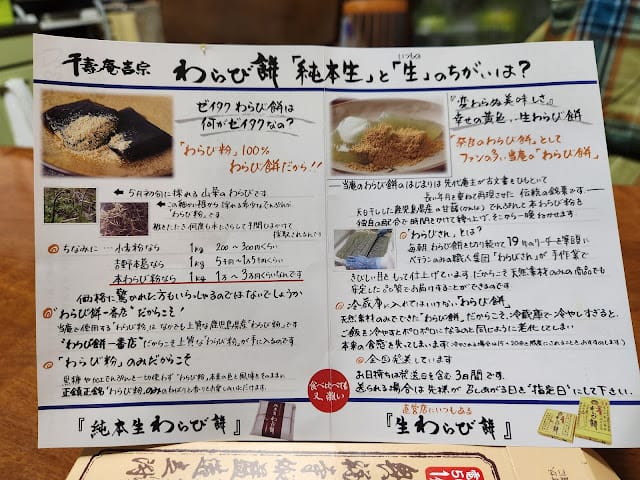 千壽庵吉宗
わらび餅「純本生」と「生」のちがいは?
いつもの
ゼイタクわらび餅は
何がゼイタクなの?
「わらび粉」100%
わらび餅だから!!
← 5月下旬に採れる山菜のわらびです
この細い根から採れる希少なでんぷんが
"わらび粉"です
根をたたき何度も水にさらして手間ひまかけて
採取されるんです
◎ちなみに… 小麦粉なら 1kg 200〜300円くらい
吉野本葛なら 1kg 5千〜1.5万円くらい
本わらび粉なら 1kg 1万〜3万円くらいなんです
価格に驚かれた方もいらっしゃるのではないでしょうか
◎"わらび餅一番店"だからこそ!
当庵で使用する"わらび粉"はなかでも上質な鹿児島県産"わらび粉"です
"わらび餅一番店"だからこそ上質な"わらび粉"が手に入るのです
◎「わらび粉」のみだからこそ
黒糖や加工でんぷんを一切使わず"わらび粉"本来の色と風味をそのままに
正真正銘"わらび粉"のみのねばりと香りをお楽しみいただけます。
『純本生わらび餅』
食べ比べてる
又、激い
『変わらぬ美味しさ』
幸せの黄色い生わらび餅
奈良のわらび餅として
ファンの多い当庵の「わらび餅」
当庵のわらび餅のはじまりは先代庵主が古文書をひもといて
長い年月と重ねて再現させた 伝統の銘菓です。
天日干しした鹿児島県産の甘藷(かんしょ)でんぷんと本わらび粉を
独自の配合と時間をかけて練り上げ、そこから一晩ねかせます
◎「わらびさん」とは?
毎朝わらび餅を切り続けて19年のリーダーを筆頭に
ベテランのみの職人集団「わらびさん」が手作業で
きびしい目をもって仕上げています。だからこそ天然素材のみの商品でも
安定した品質でお届けすることができるのです
◎冷蔵庫に入れてはいけないわらび餅
天然素材のみでできた「わらび餅」だからこそ、冷蔵庫で冷やしすぎると、
ご飯を冷やすとポロポロになるのと同じように老化してしまい
本来の食感を失ってしまいます
◎全国発送しています
お日持ちは発送日を含む3日間です。
送られる場合は先様が召しあがる日を"指定日"にして下さい。
直営店にいつもある
『生わらび餅』